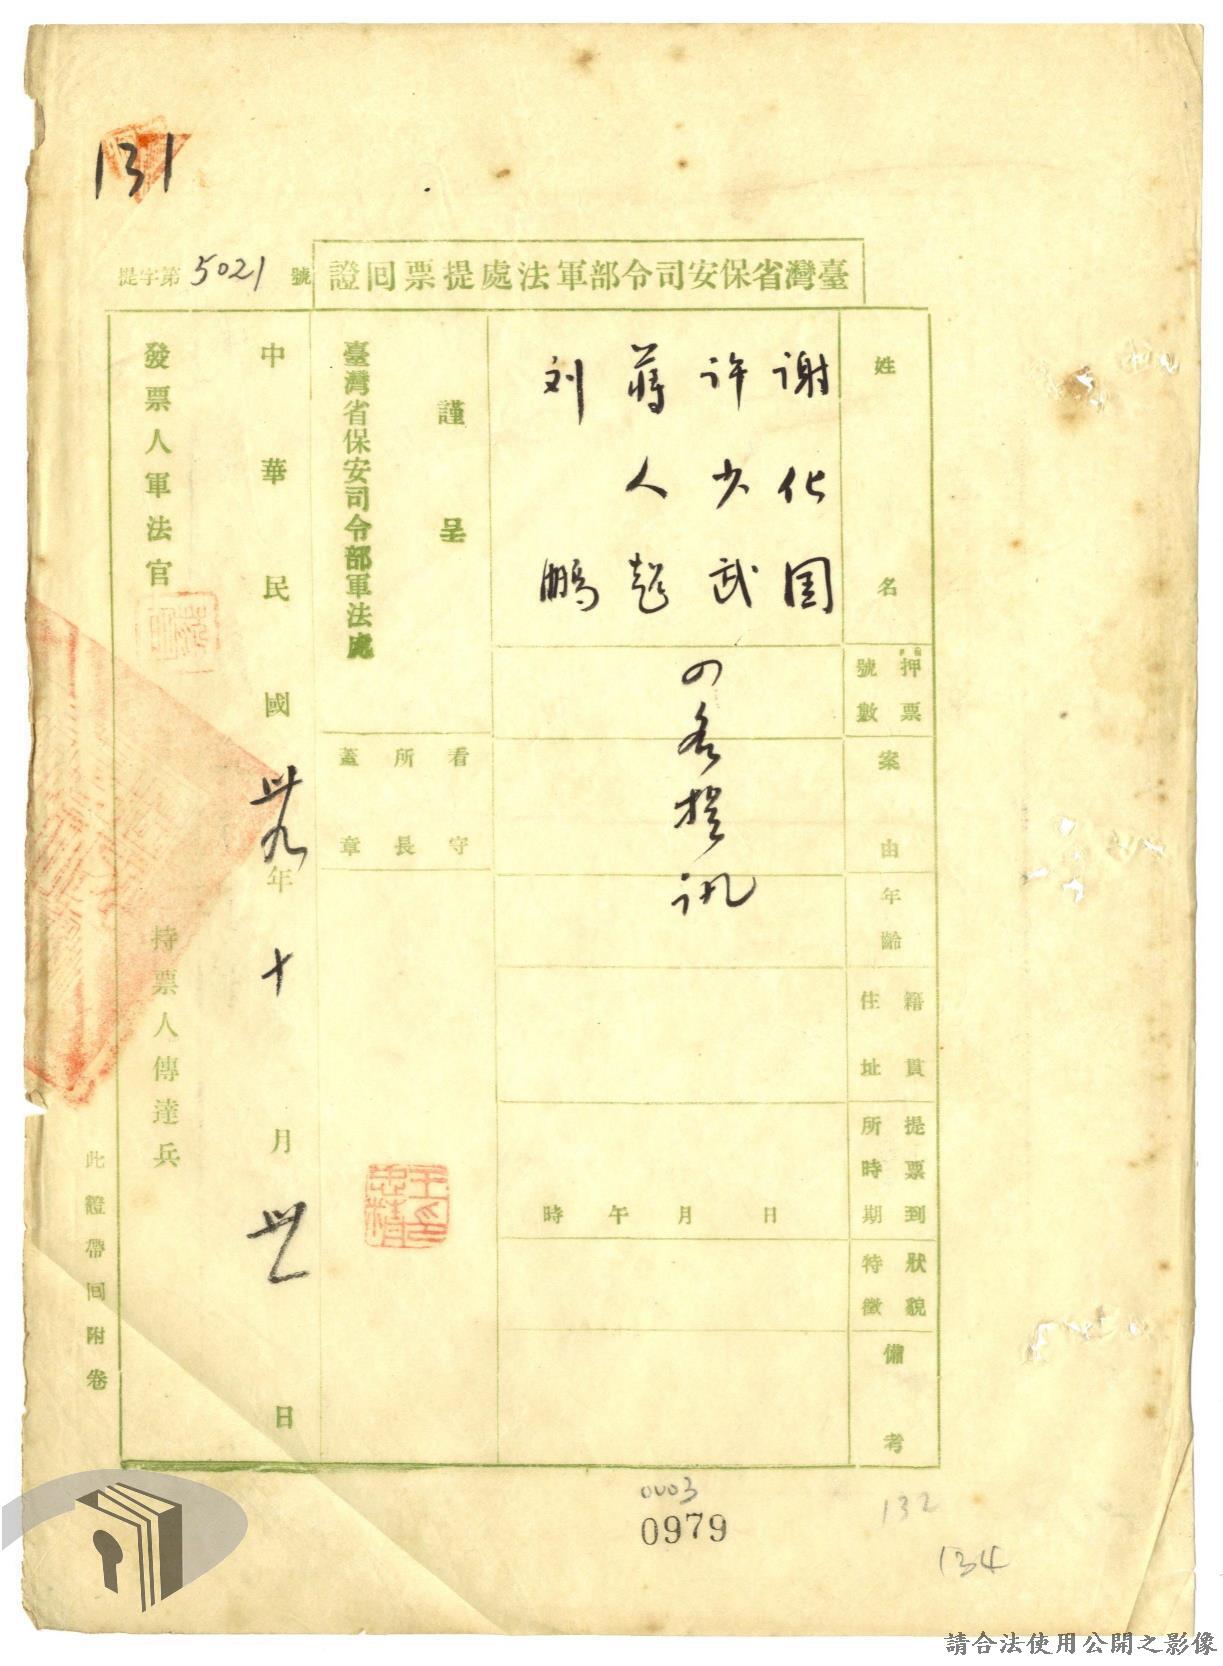 131
臺灣省保安司令部軍法處提票回證
提字第5021號
姓名
押票號數
案由
年齡
籍貫住址
提票到所時期
狀貌特徵
備考
谢化国
许少武
蔣人超
刘鹏
の名提讯
日月午時
謹呈
臺灣省保安司令部軍法處
看守所長蓋章
中華民國卅九年十月卅一日
發票人軍法官
持票人傳達兵
此證帶回附卷
0003
0979
132
134
請合法使用公開之影像